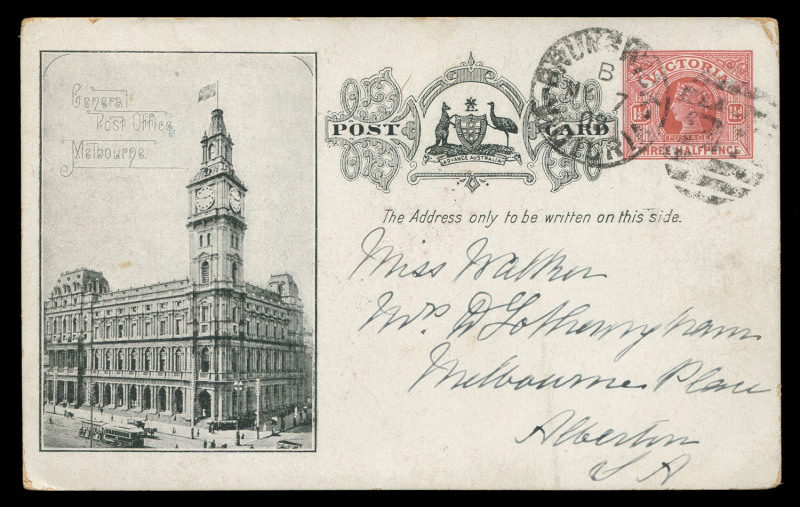 General
Post Office,
Melbourne.
POST CARD
ADVANCE AUSTRALIA
BRUNSWICK
B
7
VICTORIA
VICTORIA
1½D 1½D
THREE HALFPENCE
The Address only to be written on this side.
Miss Walker
Mrs D Lotheringham
Melbourne Place
Alberton
SA